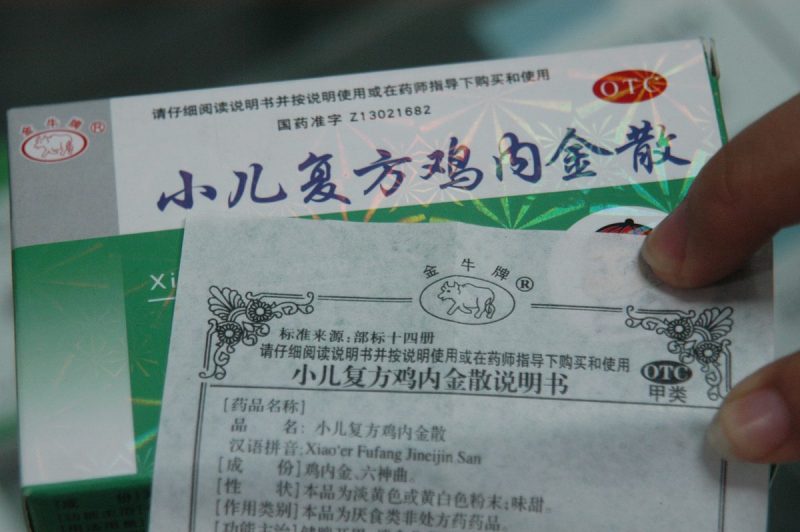 请仔细阅读说明书并按说明使用或在药师指导下购买和使用
OTC
国药准字 Z13021682
金牛牌®
小儿复方鸡内金散
Xi
金牛牌®
标准来源:部标十四册
请仔细阅读说明书并按说明使用或在药师指导下购买和使用
OTC
小儿复方鸡内金散说明书
甲类
[药品名称]
品 名: 小儿复方鸡内金散
汉语拼音:Xiao'er Fufang Jineijin San
[成 份] 鸡内金、六神曲。
[性 状] 本品为淡黄色或黄白色粉末;味甜。
[作用类别] 本品为厌食类非处方药药品。
[功能主治]